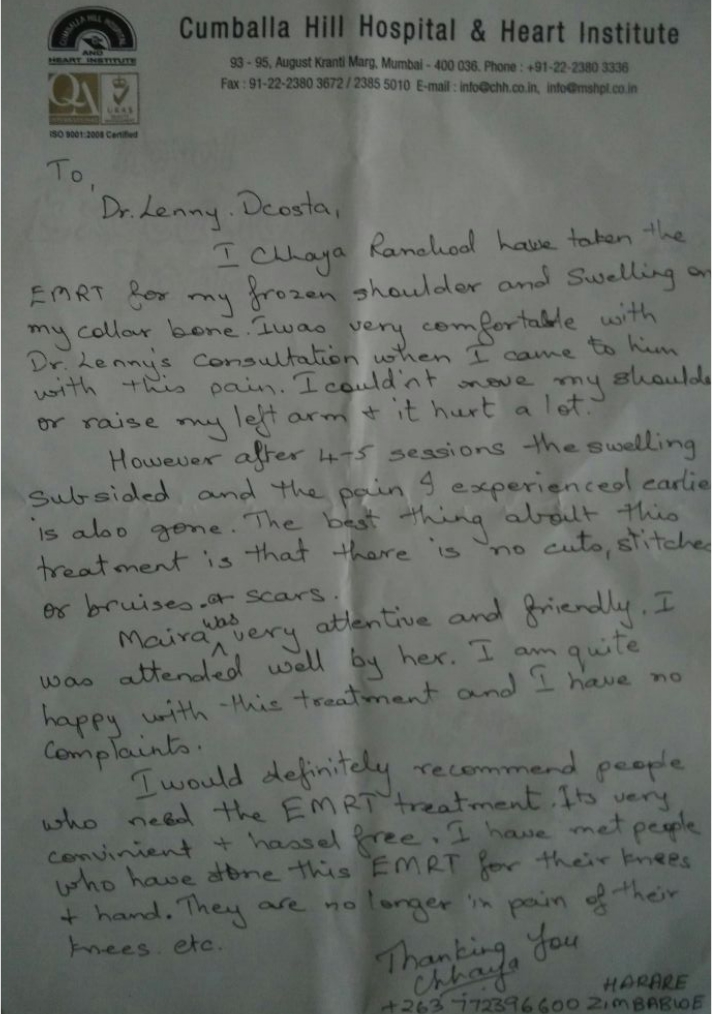 CUMBALLA HILL HOSPITAL
AND
HEART INSTITUTE
QA
INTERNATIONAL
UKAS
QUALITY
MANAGEMENT
ISO 9001:2008 Certified
Cumballa Hill Hospital & Heart Institute
93 - 95, August Kranti Marg, Mumbai - 400 036. Phone : +91-22-2380 3336
Fax : 91-22-2380 3672 / 2385 5010 E-mail : info@chh.co.in, info@mshpl.co.in
To,
Dr. Lenny. Dcosta,
I Chhaya Ranchod have taken the
EMRT for my frozen shoulder and Swelling on
my collar bone. I was very comfortable with
Dr. Lenny's Consultation when I came to him
with this pain. I couldn't move my shoulde
or raise my left arm + it hurt a lot.
However after 4-5 sessions the swelling
Subsided and the pain I experienced earlie
is also gone. The best thing about this
treatment is that there is no cuts, stitches
or bruises. or scars.
Maira was very attentive and friendly. I
was attended well by her. I am quite
happy with this treatment and I have no
Complaints.
I would definitely recommend people
who need the EMRT treatment. Its very
convinient + hassel free. I have met people
who have done this EMRT for their knees
+ hand. They are no longer in pain of their
knees. etc.
Thanking You
Chhaya
HARARE
+263 772396600 ZIMBABWE